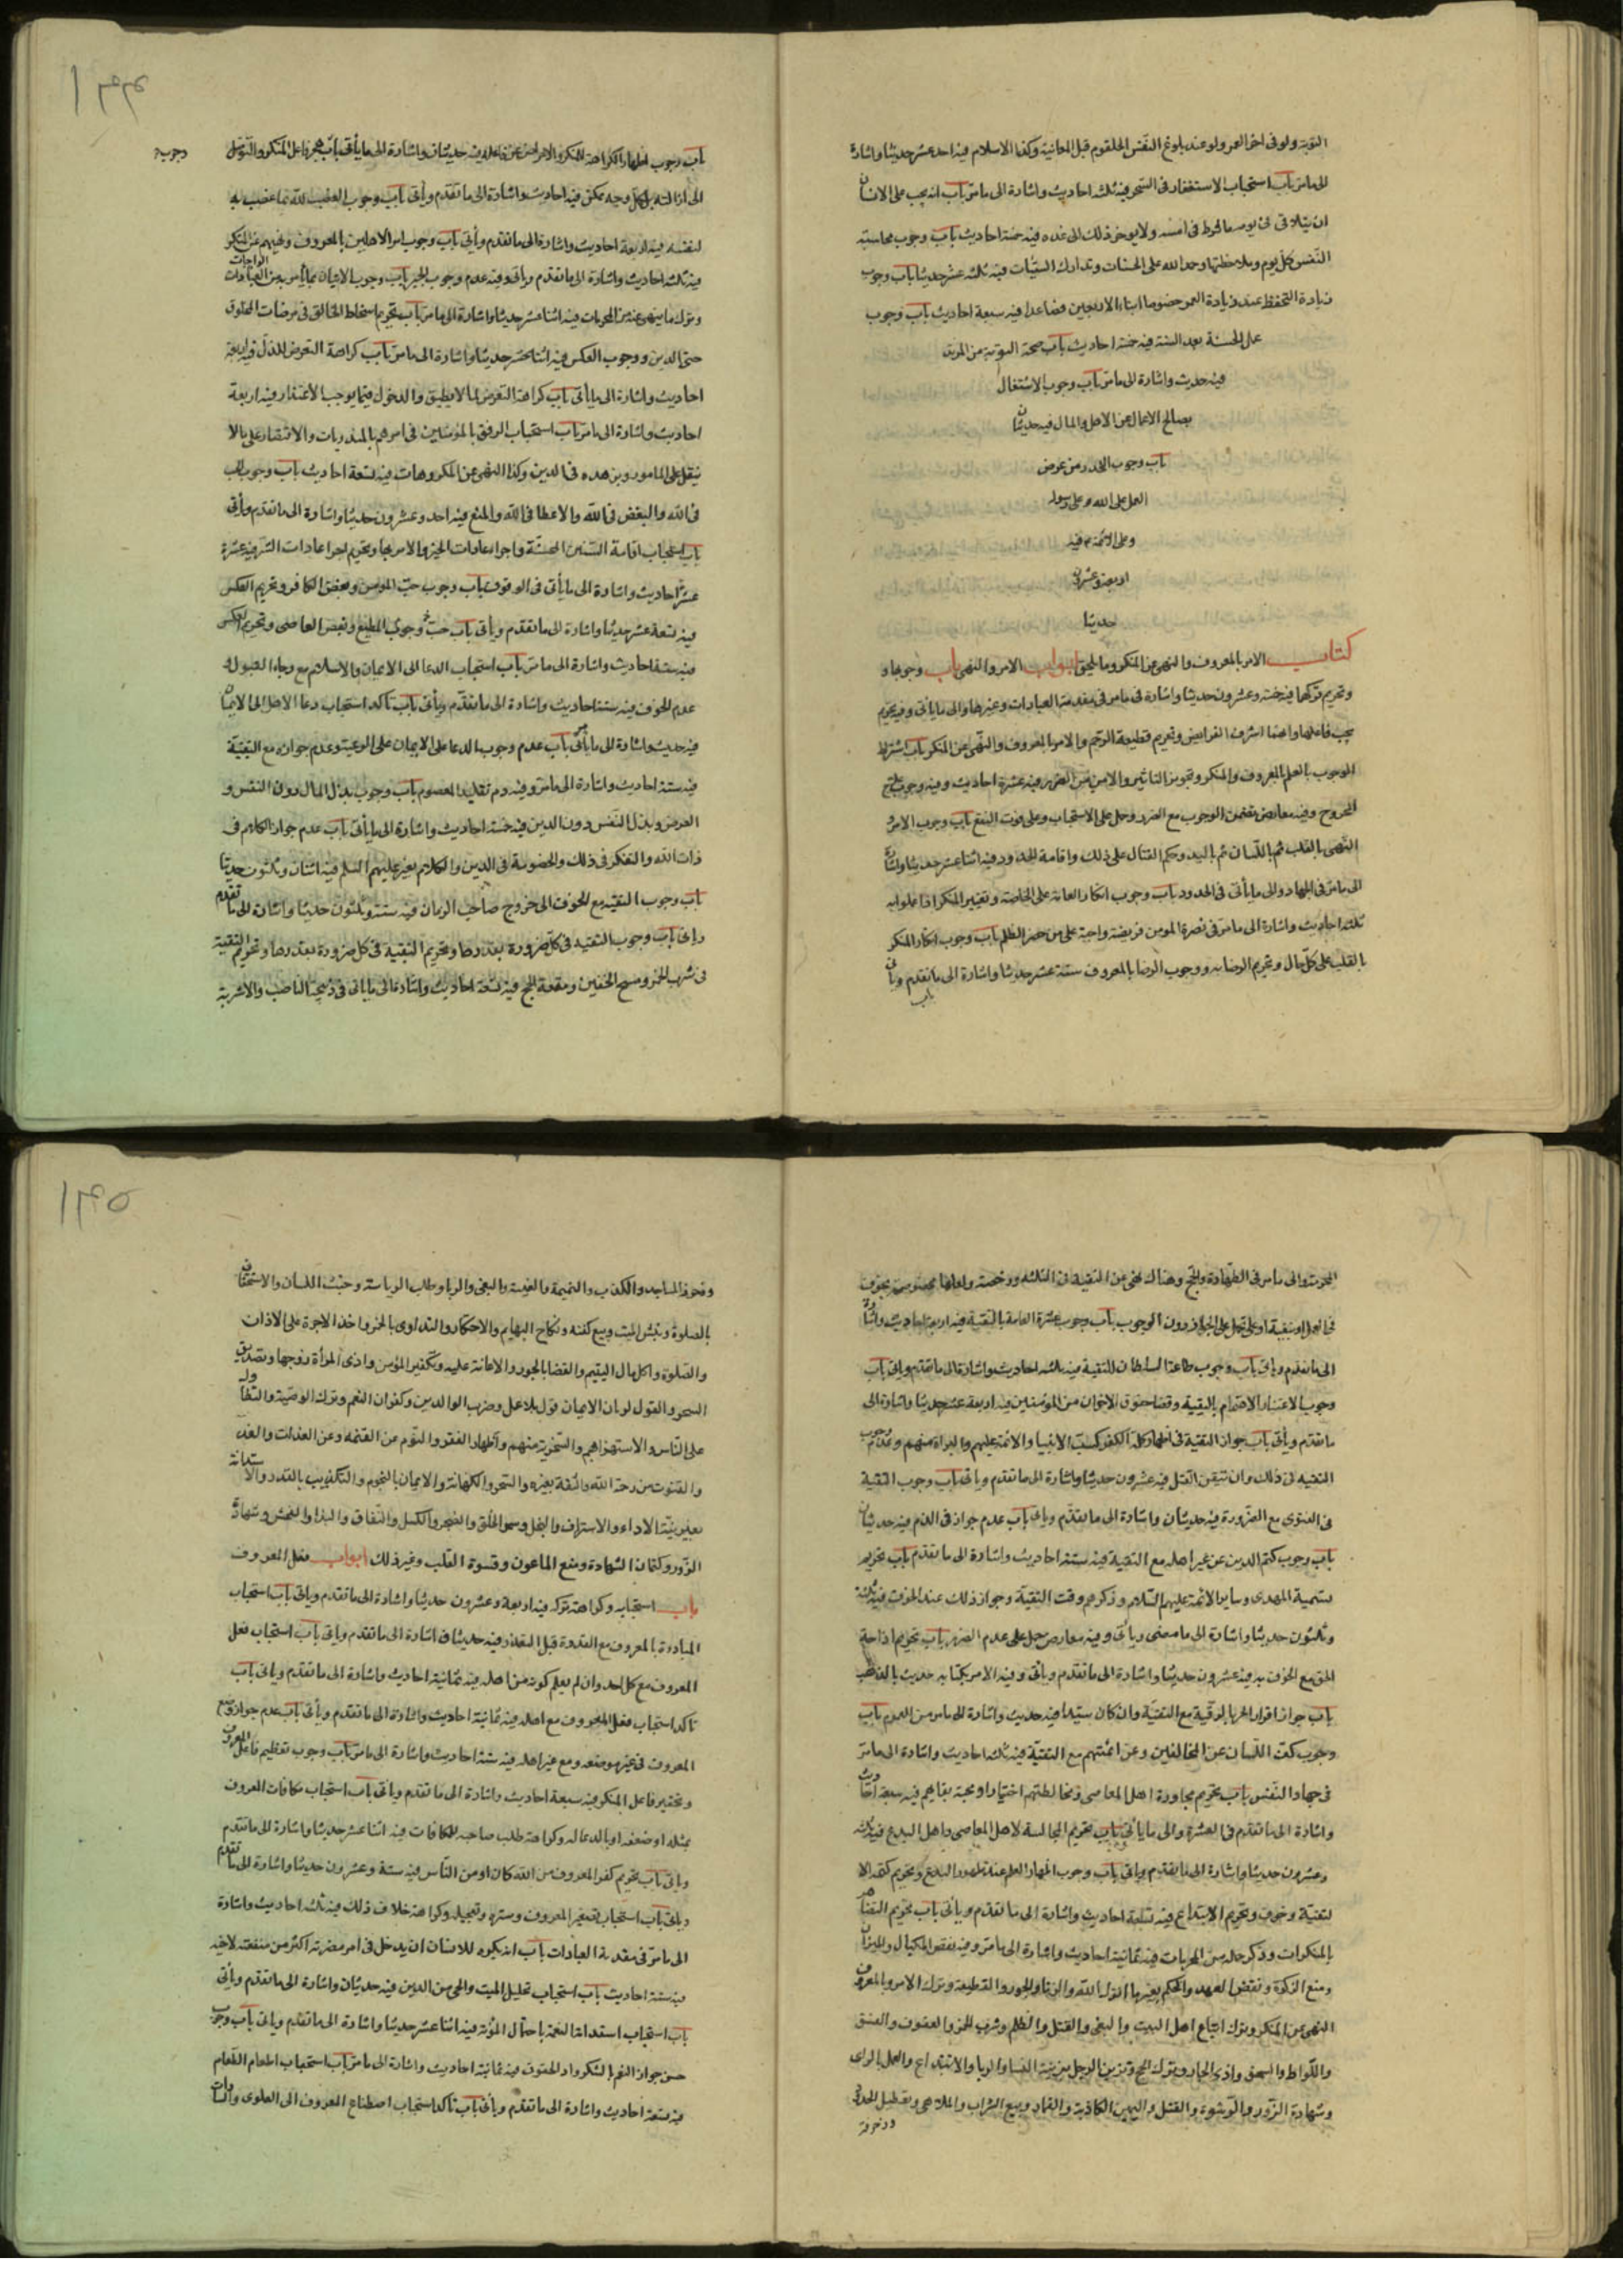 التوبة ولو فى اخر العمر ولو عند بلوغ النفس الحلقوم قبل المعاينة وكذا الاسلام فيه احد عشر حديثا واشارة
الى ما مر باب استحباب الاستغفار فى السحر فيه ثلثه احاديث واشارة الى ما مر باب انه يجب على الانسان
ان يتلافى فى يومه ما فرط فى امسه ولا يوخر ذلك الى غده فيه خمسة احاديث باب وجوب محاسبة
النفس كل يوم وملاحظتها وحمد الله على الحسنات وتدارك السيئات فيه ثلثه عشر حديثا باب وجوب
زيادة التحفظ عند زيادة العمر خصوصا ابناء الاربعين فصاعدا فيه سبعة احاديث باب وجوب
عمل الحسنة بعد السيئة فيه خمسة احاديث باب صحة التوبة من المرتد
فيه حديث واشارة الى ما مر باب وجوب الاشتغال
بصالح الاعمال عن الاهل والمال فيه حديثان
باب وجوب الحذر من عرض
العمل على الله وعلى رسوله
وعلى الائمة ع فيه
اربعة وعشرون
حديثا
كتاب الامر بالمعروف والنهى عن المنكر وما يلحق ابواب الامر والنهى باب وجوبها و
وتحريم تركها فيه خمسة وعشرون حديثا واشارة فى ما مر فى مقدمة العبادات وغيرها والى ما ياتى وفيه تحريم
الوجوب بالعلم بالمعروف والمنكر وتجويز التاثير والامن من الضرر فيه عشرة احاديث وفيه وجوب
الخروج وفيه معارض تضمن الوجوب مع الضرر وحمل على الاستحباب وعلى فوت النفع باب وجوب الامر و
النهى بالقلب ثم باللسان ثم باليد وحكم القتال على ذلك واقامة الحدود فيه اثنا عشر حديثا واشارة
الى ما مر فى الجهاد والى ما يأتى فى الحدود باب وجوب انكار العامة على الخاصة وتغيير المنكر اذا عملوا به
ثلثه احاديث واشارة الى ما مر فى نصرة المومن فريضة واجبة على من حضر الظلم باب وجوب انكار المنكر
بالقلب على كل حال وتحريم الرضا به ووجوب الرضا بالمعروف ستة عشر حديثا واشارة الى ما تقدم ويأتى
باب
باب وجوب اظهار الكراهة للمنكر والاعراض عن فاعله فيه حديثان واشارة الى ما يأتى باب هجر فاعل المنكر والتوصل
الى ازالته بكل وجه ممكن فيه احاديث واشارة الى ما تقدم ويأتى باب وجوب الغضب لله بما غضب به
لنفسه فيه اربعة احاديث واشارة الى ما تقدم ويأتى باب وجوب امر الاهلين بالمعروف ونهيهم عن المنكر
فيه ثلثه احاديث واشارة الى ما تقدم ويأتى وفيه عدم وجوب الجبر باب وجوب الاتيان بما يأمر به من الواجبات
وترك ما ينهى عنه من المحرمات فيه اثنا عشر حديثا واشارة الى ما مر باب تحريم اسخاط الخالق فى مرضات المخلوق
حتى الوالدين ووجوب العكس فيه اثنا عشر حديثا واشارة الى ما مر باب كراهة التعرض للذل فيه اربعة
احاديث واشارة الى ما يأتى باب كراهة التعرض لما لا يطيق والدخول فيما يوجب الاعتذار فيه اربعة
احاديث واشارة الى ما مر باب استحباب الرفق بالمومنين فى امرهم بالمندوبات والاقتصار على ما لا
يثقل على المامور ويزهده فى الدين وكذا النهى عن المكروهات فيه تسعة احاديث باب وجوب الحب
فى الله والبغض فى الله والاعطا فى الله والمنع فيه احد وعشرون حديثا واشارة الى ما تقدم ويأتى
باب استحباب اقامة السنن الحسنة واجراء عادات الخير والامر بها وتحريم اجرا عادات الشر فيه عشرة
احاديث واشارة الى ما يأتى فى الوقوف باب وجوب حب المومن وبغض الكافر وتحريم العكس
فيه تسعة عشر حديثا واشارة الى ما تقدم ويأتى باب وجوب حب المطيع وبغض العاصى وتحريم العكس
فيه ستة احاديث واشارة الى ما مر باب استحباب الدعا الى الايمان والاسلام مع رجاء القبول و
عدم الخوف فيه ستة احاديث واشارة الى ما تقدم ويأتى باب تاكد استحباب دعا الاهل الى الايمان
فيه حديث واشارة الى ما يأتى باب عدم وجوب الدعا على الايمان على الرعية وعدم جوازه مع التقية
فيه ستة احاديث واشارة الى ما مر وفيه ذم تقليد غير المعصوم باب وجوب بذل المال دون النفس و
العرض وبذل النفس دون الدين فيه خمسة احاديث واشارة الى ما يأتى باب عدم جواز الكلام فى
ذات الله والتفكر فى ذلك والخصومة فى الدين والكلام بغير عليهم السلم فيه اثنان وثلثون حديثا
باب وجوب التقيه مع الخوف الى خروج صاحب الزمان فيه ستة وثلثون حديثا واشارة الى ما تقدم
ويأتى باب وجوب التقيه فى كل ضرورة بقدرها وتحريم التقية
فى شرب الخمر ومسح الخفين ومتعة الحج فيه تسعة احاديث واشارة الى ما ياتى فى ذبيحة الناصب والاشربة
الى ما تقدم ويأتى باب وجوب طاعة السلطان للتقية فيه ثلثه احاديث واشارة الى ما تقدم ويأتى باب
وجوب الاعتناء والاهتمام بالتقية وقضا حقوق الاخوان من المؤمنين فيه اربعة عشر حديثا واشارة الى
ما تقدم ويأتى باب جواز التقية فى اظهار كلمة الكفر كسب الانبيا والائمة عليهم والبراة منهم وعدم وجوب
التقيه فى ذلك وان تيقن القتل فيه عشرون حديثا واشارة الى ما تقدم وياتى باب وجوب التقية
فى الفتوى مع الضرورة فيه حديثان واشارة الى ما تقدم وياتى باب عدم جواز فى الدم فيه حديثان
باب وجوب كتم الدين عن غير اهله مع التقية فيه ستة احاديث واشارة الى ما تقدم باب تحريم
تسمية المهدى وساير الائمة عليهم السلام وذكرهم وقت التقية وجواز ذلك عند الخوف فيه ثلثة
وثلثون حديثا واشارة الى ما مضى ويأتى وفيه معارض حمل على عدم الضرر باب تحريم اذاعة
الحق مع الخوف به فيه عشرون حديثا واشارة الى ما تقدم ويأتى وفيه الامر بكتابه حديث بالذهب
باب جواز اقرار الحر بالرقية مع التقية وان كان سيدا فيه حديث واشارة الى ما مر باب
وجوب كف اللسان عن المخالفين وعن ائمتهم مع التقية فيه ثلثه احاديث واشارة الى ما مر
فى جهاد النفس باب تحريم مجاورة اهل المعاصى ومخالطتهم اختيارا ومحبة بقائهم فيه سبعة احاديث
واشارة الى ما تقدم فى العشرة والى ما يأتى باب تحريم المجالسة لاهل المعاصى واهل البدع فيه ثلثه
وعشرون حديثا واشارة الى ما تقدم وياتى باب وجوب اظهار العلم عند ظهور البدع وتحريم كتمه الا
لتقية وخوف وتحريم الابتداع فيه تسعة احاديث واشارة الى ما تقدم ويأتى باب تحريم التظاهر
بالمنكرات وذكر جمله من المحرمات فيه ثمانية احاديث واشارة الى ما مر وفيه نقص المكيال والميزان
ومنع الزكوة ونقض العهد والحكم بغير ما انزل الله والزنا والجور والقطيعة وترك الامر بالمعروف و
النهى عن المنكر وترك اتباع اهل البيت والبغى والقتل والظلم وشرب الخمر والعقوق والفسق
واللواط والسحق واذى الجار وترك الحج وتزيين الرجل بزينة النسا والربا والابتداع والعمل بالراى
وشهادة الزور والرشوة والقتل واليمين الكاذبة والقمار وبيع الشراب والملاهى وتعطيل الحدود
وزخرفة
وزخرفة المساجد والكذب والنميمة والغيبة والبغى والربا وطلب الرياسة وخبث اللسان والاستخفاف
بالصلوة ونبش الميت وبيع كفنه ونكاح البهايم والاحتكار والتداوى بالخمر واخذ الاجرة على الاذان
والصلوة واكل مال اليتيم والقضا بالجور والاعانة عليه وتكفير المؤمن واذى المرأة زوجها وتصديق
السحر والقول بان الايمان قول بلا عمل وضرب الوالدين وكفران النعم وترك الوصية والتطاول
على الناس والاستهزا بهم والسخرية منهم واظهار الفقر والنوم عن العتمه وعن الغداة
والقنوت من رحمة الله والثقة بغيره والسحر والكهانة والايمان بالنجوم والتكذيب بالقدر والاستدانة
بغير نية الاداء والاسراف والبخل وسوء الخلق والضجر والكسل والنفاق والبذا والفحش وشهادة
الزور وكتمان الشهادة ومنع الماعون وقسوة القلب وغير ذلك ابواب فعل المعروف
باب استحبابه وكراهة تركه فيه اربعة وعشرون حديثا واشارة الى ما تقدم وياتى باب استحباب
المبادرة بالمعروف مع القدرة قبل التعذر وفيه حديثان واشارة الى ما تقدم وياتى باب استحباب فعل
المعروف مع كل احد وان لم يعلم كونه من اهله فيه ثمانية احاديث واشارة الى ما تقدم وياتى باب
تاكد استحباب فعل المعروف مع اهله فيه ثمانية احاديث واشارة الى ما تقدم ويأتى باب عدم جواز وضع
المعروف فى غير موضعه ومع غير اهله فيه ستة احاديث واشارة الى ما مر باب وجوب تعظيم فاعل المعروف
وتحقير فاعل المنكر فيه سبعة احاديث واشارة الى ما تقدم وياتى باب استحباب مكافات المعروف
بمثله او ضعفه او بالدعا له وكراهة طلب صاحبه للمكافات فيه اثنا عشر حديثا واشارة الى ما تقدم
وياتى باب تحريم كفر المعروف من الله كان او من الناس فيه ستة وعشرون حديثا واشارة الى ما تقدم
وياتى باب استحباب تصغير المعروف وستره وتعجيله وكراهة خلاف ذلك فيه ثلثه احاديث واشارة
الى ما مر فى مقدمة العبادات باب انه يكره للانسان ان يدخل فى امر مضرته اكثر من منفعته لاخيه
فيه ستة احاديث باب استحباب تحليل الميت والحى من الدين فيه حديثان واشارة الى ما تقدم ويأتى
باب استحباب استدامة النعمة باحتمال المؤنة فيه اثنا عشر حديثا واشارة الى ما تقدم وياتى باب وجوب
حسن جوار النعم بالشكر واداء الحقوق فيه ثمانية احاديث واشارة الى ما مر باب استحباب اطعام الطعام
فيه تسعة احاديث واشارة الى ما تقدم ويأتى باب تاكد استحباب اصطناع المعروف الى العلوى والسادات